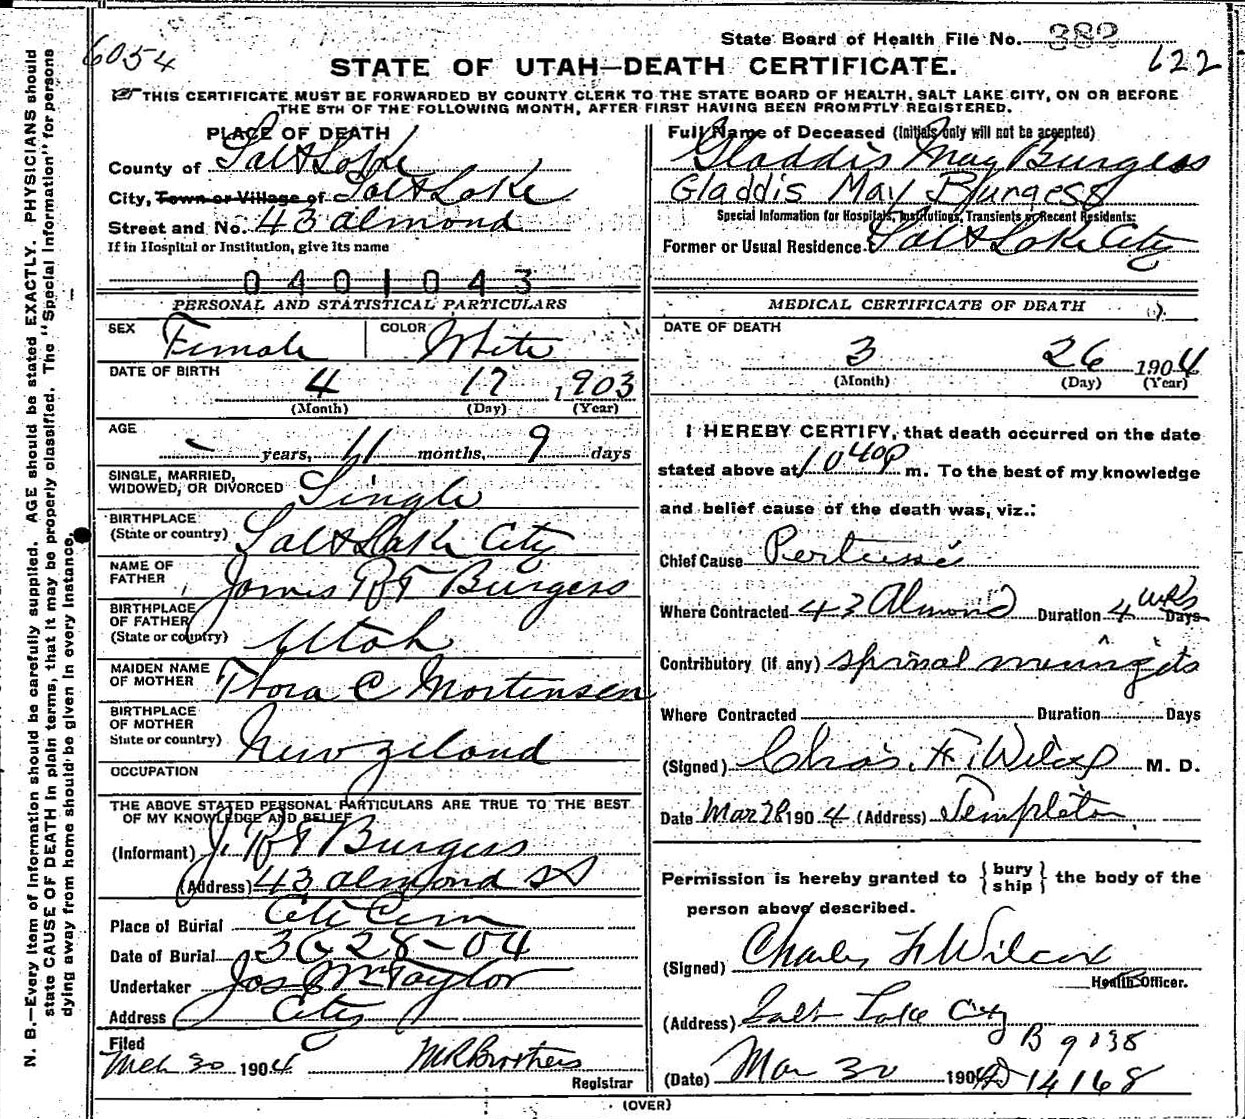 State Board of Health File No. 382
6054
622
STATE OF UTAH—DEATH CERTIFICATE.
THIS CERTIFICATE MUST BE FORWARDED BY COUNTY CLERK TO THE STATE BOARD OF HEALTH, SALT LAKE CITY, ON OR BEFORE
THE 5TH OF THE FOLLOWING MONTH, AFTER FIRST HAVING BEEN PROMPTLY REGISTERED.
N. B.—Every item of information should be carefully supplied. AGE should be stated EXACTLY. PHYSICIANS should
state CAUSE OF DEATH in plain terms, that it may be properly classified. The "Special Information" for persons
dying away from home should be given in every instance.
PLACE OF DEATH
County of Salt Lake
City, Town or Village of Salt Lake
Street and No. 43 Almond
If in Hospital or Institution, give its name
0401043
PERSONAL AND STATISTICAL PARTICULARS
SEX Female COLOR White
DATE OF BIRTH 4 17 1903
(Month) (Day) (Year)
AGE – years, 11 months, 9 days
SINGLE, MARRIED,
WIDOWED, OR DIVORCED Single
BIRTHPLACE
(State or country) Salt Lake City
NAME OF
FATHER James R T Burgess
BIRTHPLACE
OF FATHER
(State or country) Utah
MAIDEN NAME
OF MOTHER Thora C Mortensen
BIRTHPLACE
OF MOTHER
State or country) New Zeland
OCCUPATION
THE ABOVE STATED PERSONAL PARTICULARS ARE TRUE TO THE BEST
OF MY KNOWLEDGE AND BELIEF
(Informant) J. R T Burgess
(Address) 43 Almond St
Place of Burial City Cem
Date of Burial 3 28-04
Undertaker Jos Wm Taylor
Address City
Filed
Mch 30 1904 M R Brothers
Registrar
Full Name of Deceased (Initials only will not be accepted)
Gladdis May Burgess
Gladdis May Burgess
Special Information for Hospitals, Institutions, Transients or Recent Residents:
Former or Usual Residence Salt Lake City
MEDICAL CERTIFICATE OF DEATH
DATE OF DEATH
3 26 1904
(Month) (Day) (Year)
I HEREBY CERTIFY, that death occurred on the date
stated above at 10 40 p m. To the best of my knowledge
and belief cause of the death was, viz.:
Chief Cause Pertussis
Where Contracted 43 Almond Duration 4 wks Days
Contributory (if any) spinal meningitis
Where Contracted Duration Days
(Signed) Chas. F. Wilcox M. D.
Date Mar 28 1904 (Address) Templeton
Permission is hereby granted to {bury
ship} the body of the
person above described.
(Signed) Charles F Wilcox
Health Officer.
(Address) Salt Lake City
B 9138
(Date) Mar 30 1904 D 14168
(OVER)